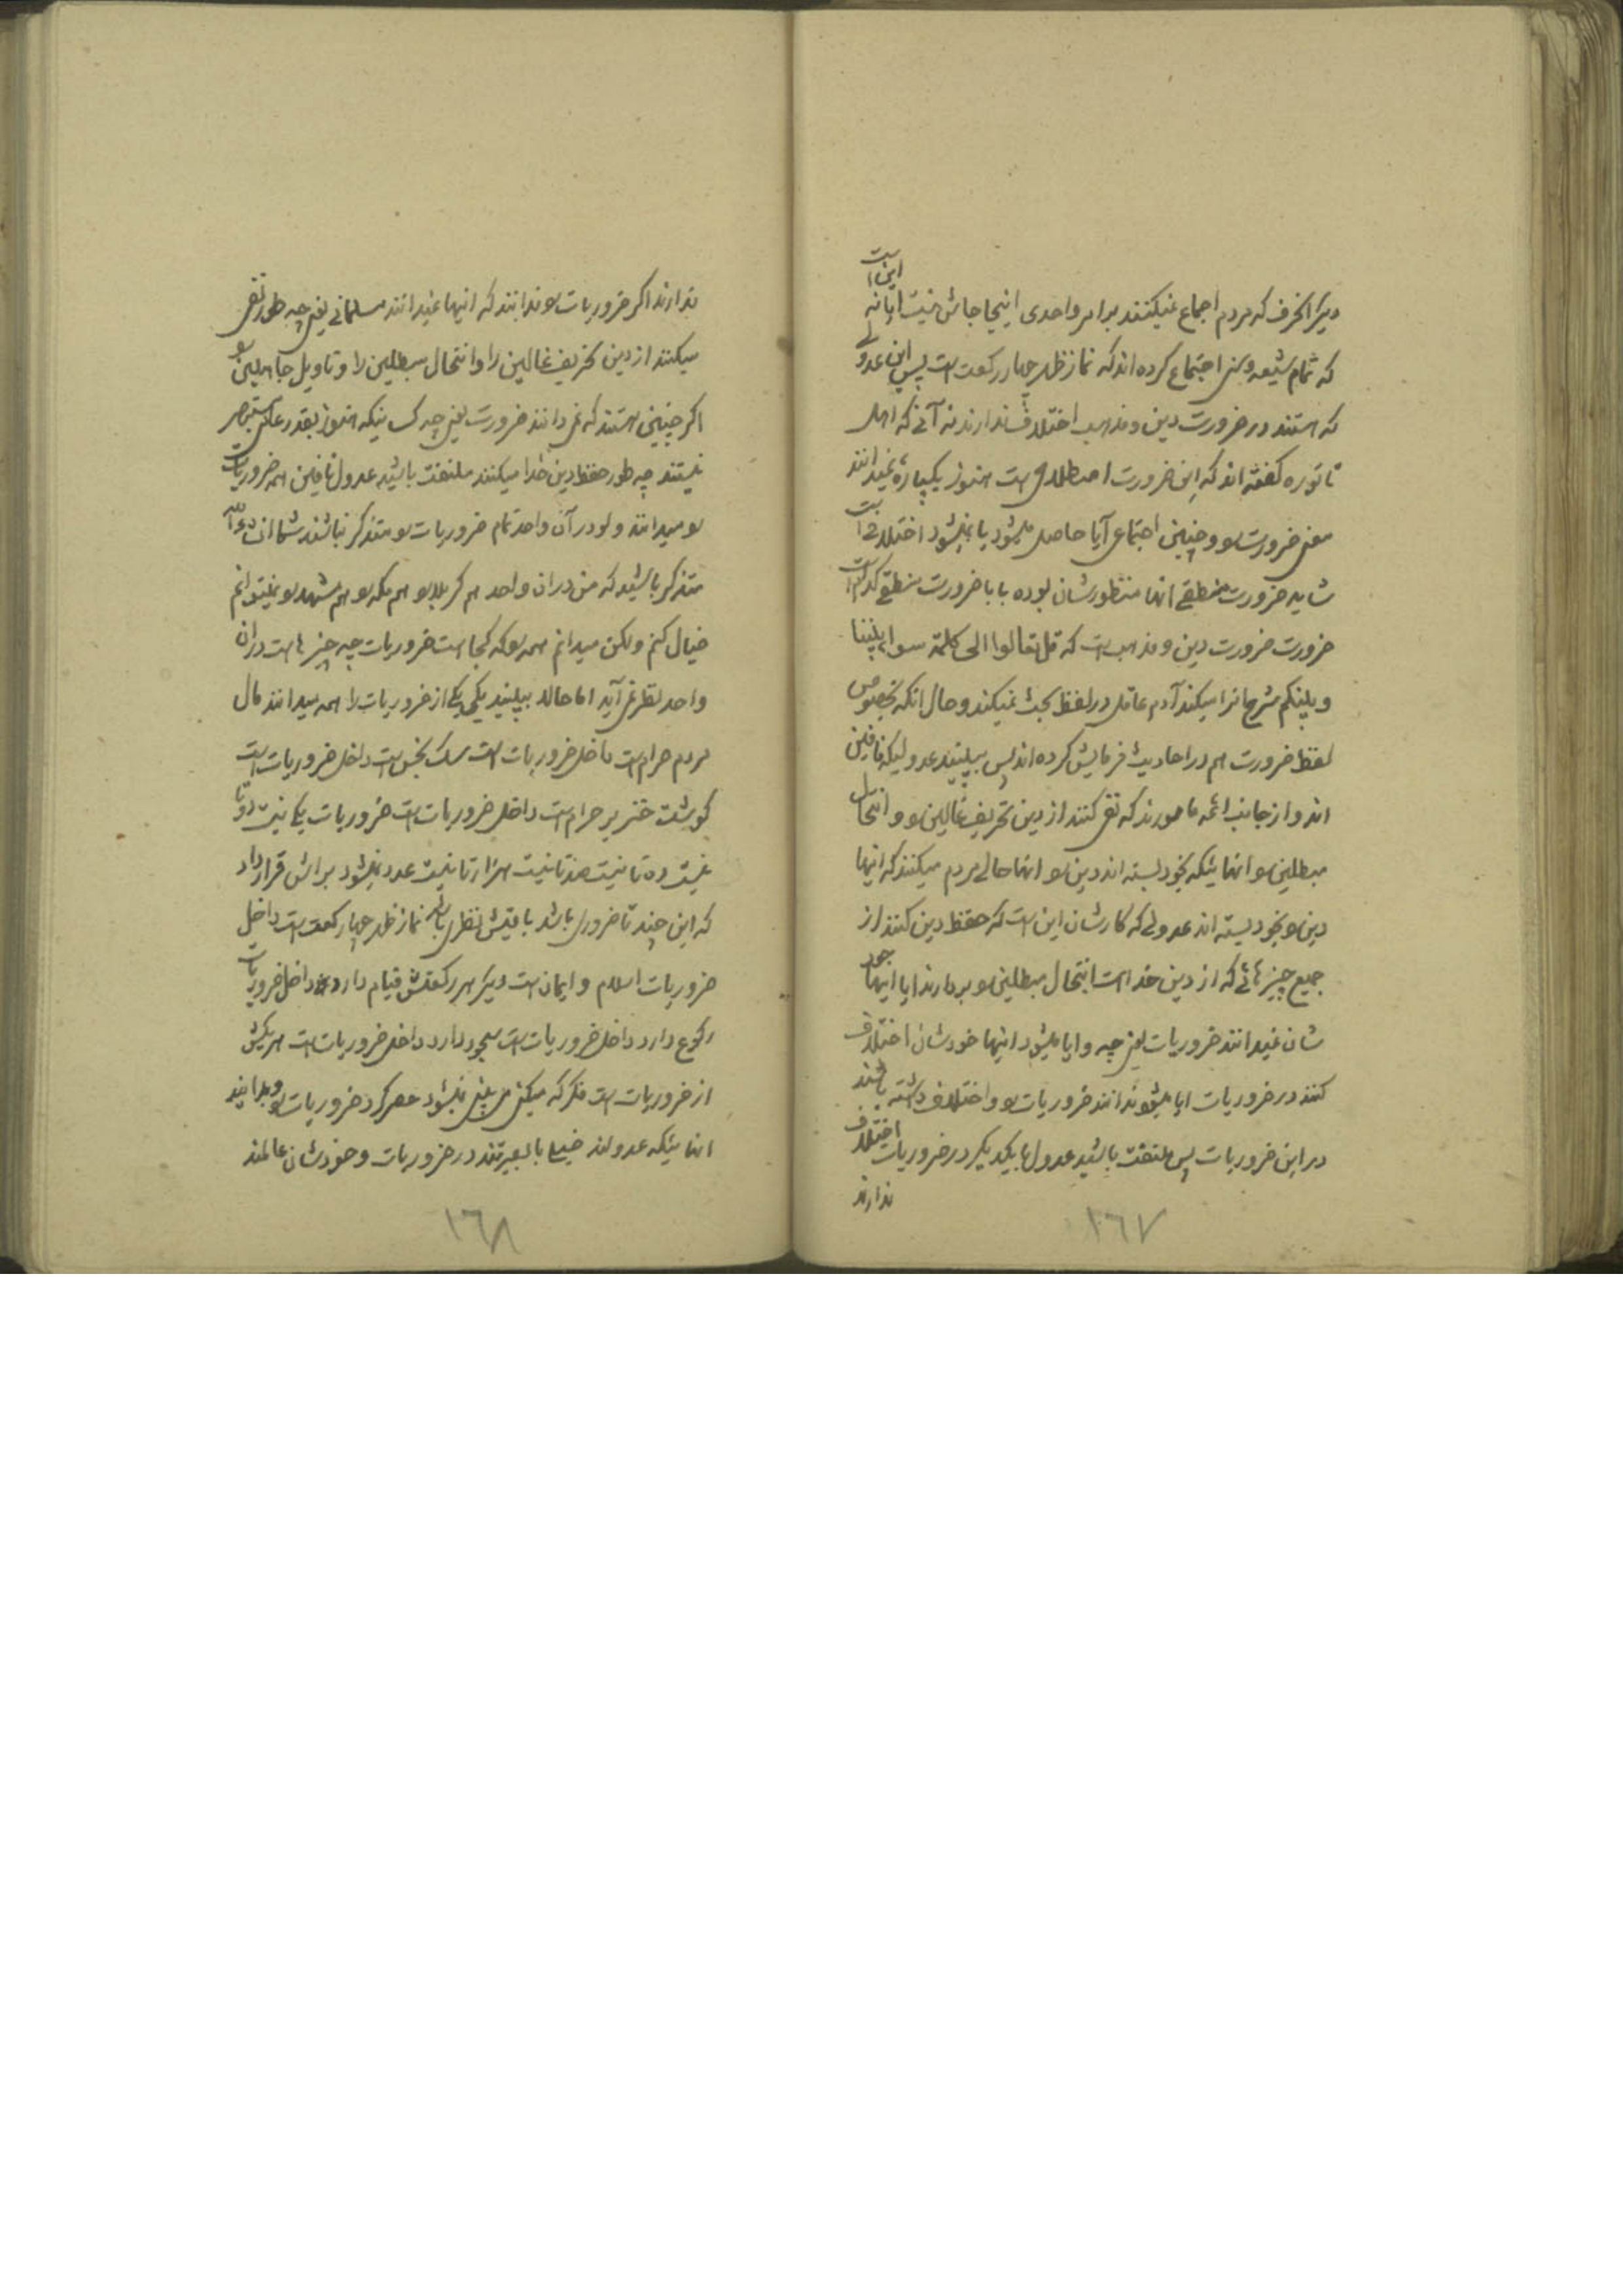 دیگر انحرف که مردم اجماع نمیکنند بر امر واحدی اینجا جاش نیست ایا نه این است
که تمام شیعه و سنی اجتماع کرده اند که نماز ظهر چهار رکعت است پس این عدولی
که هستند در ضرورت دین و مذهب اختلاف ندارند نه آنی که اهل
تا توره کفته اند که این ضرورت اصطلاحی است هنوز یکپاره نمیدانند
معنی ضرورت را و چنین اجتماعی آیا حاصل میشود یا نمیشود اختلافی است
شاید ضرورت منطقی انها منظورشان بوده بابا ضرورت منطقی کدام است
ضرورت ضرورت دین و مذهب است که قل تعالوا الی کلمة سواء بیننا
و بینکم شرح انرا میکند آدم عاقل در لفظ بحث نمیکند و حال انکه بخصوص
لفظ ضرورت هم در احادیث فرمایش کرده اند پس ببینید عدولیکه نافین
اند و از جانب ائمه مامورند که نفی کنند از دین تحریف غالین را و انتحال
مبطلین را و انهائیکه بخود بسته اند دین را و انها حالی مردم میکنند که اینها
دین را بخود بسته اند عدولی که کارشان این است که حفظ دین کنند از
جمیع چیزهائی که از دین خدا است انتحال مبطلین را بردارند ایا اینها خود
شان نمیدانند ضروریات یعنی چه و ایا میشود اینها خودشان اختلاف
کنند در ضروریات ایا میشود ندانند ضروریات را و اختلاف داشته باشند
در این ضروریات پس ملتفت باشید عدول با یکدیگر در ضروریات اختلاف
ندارند
١٦٧
ندارند اکر ضروریات را ندانند که اینها نمیدانند مسلمانی یعنی چه طور نفی
میکنند از دین تحریف غالین را و انتحال مبطلین را و تاویل جاهلین را
اکر چنینی هستند که نمی دانند ضرورت یعنی چه کسانیکه هنوز بقدر عامی مستبصر
نیستند چه طور حفظ دین خدا میکنند ملتفت باشید عدول نافین همه ضروریات
را میدانند ولو در آن واحد تمام ضروریات را متذکر نباشند شما انشاءالله
متذکر باشید که من در ان واحد هم کربلا را هم مکه را هم مشهد را نمیتوانم
خیال کنم ولکن میدانم همه را که کجا است ضروریات چه چیزها است در ان
واحد بنظر نمی آید اما حالا ببینید یکی یکی از ضروریات را همه میدانند مال
مردم حرام است داخل ضروریات است سک نجس است داخل ضروریات است
کوشت خنزیر حرام است داخل ضروریات است ضروریات یکی نیست دو تا
نیست ده تا نیست صد تا نیست هزار تا نیست عدد نمیشود براش قرار داد
که این چند تا ضروری باشد باقیش نظری باشد نماز ظهر چهار رکعت است داخل
ضروریات اسلام و ایمان است دیگر هر رکعتش قیام دارد داخل ضروریات
رکوع دارد داخل ضروریات است سجود دارد داخل ضروریات است هر یکیش
از ضروریات است فکر که میکنی می بینی نمیشود حصر کرد ضروریات را و بدانید
انهائیکه عدولند خیلی بابصیرتند در ضروریات و خودشان عالمند
١٦٨